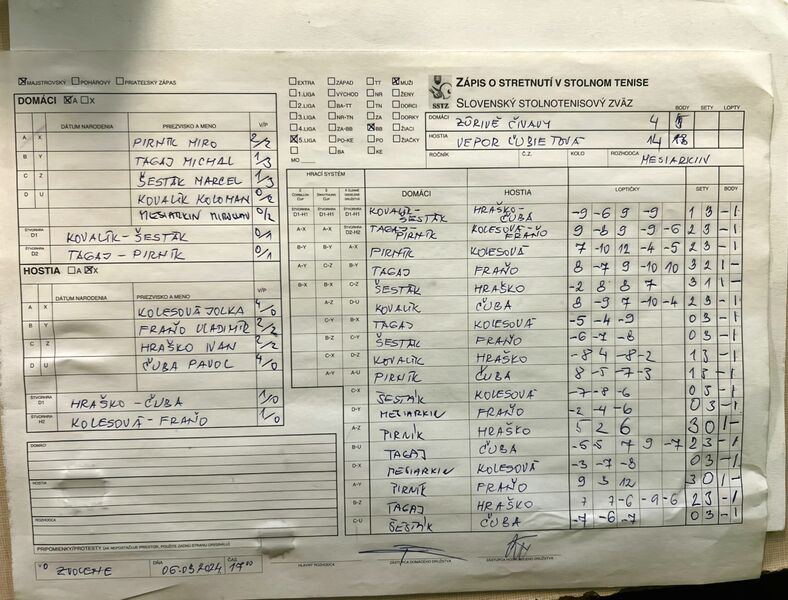 MAJSTROVSKÝ POHÁROVÝ PRIATEĽSKÝ ZÁPAS
DOMÁCI A X
DÁTUM NARODENIA PRIEZVISKO A MENO V/P
A X PIRNÍK MIRO 2/2
B Y TAGAJ MICHAL 1/3
C Z ŠESTÁK MARCEL 1/3
D U KOVALÍK KOLOMAN 0/2
MESIARKIN MIROSLAV 0/2
ŠTVORHRA D1 KOVALÍK-ŠESTÁK 0/1
ŠTVORHRA D2 TAGAJ-PIRNÍK 0/1
HOSTIA A X
DÁTUM NARODENIA PRIEZVISKO A MENO V/P
A X KOLESOVÁ JOLKA 4/0
B Y FRAŇO VLADIMÍR 2/2
C Z HRAŠKO IVAN 2/2
D U ČUBA PAVOL 4/0
ŠTVORHRA HRAŠKO-ČUBA 1/0
ŠTVORHRA H2 KOLESOVÁ-FRAŇO 1/0
DOMÁCI
HOSTIA
ROZHODCA
PRIPOMIENKY/PROTESTY
ZVOLENE DŇA 06.03.2024 ČAS 1700
EXTRA ZÁPAD TT MUŽI
1.LIGA VÝCHOD NR ŽENY
2.LIGA BA-TT TN DORCI
3.LIGA NR-TN ZA DORKY
4.LIGA ZA-BB BB ŽIACI
5.LIGA PO-KE PO ŽIAČKY
BA KE
MO
SSTZ
ZÁPIS O STRETNUTÍ V STOLNOM TENISE
SLOVENSKÝ STOLNOTENISOVÝ ZVÄZ
BODY SETY LOPTY
DOMÁCI ZÚRIVÉ ČIVAVY 4
HOSTIA VEPOR ĽUBIETOVÁ 14
ROČNÍK Č.Z. KOLO ROZHODCA MESIARKIN
HRACÍ SYSTÉM DOMÁCI HOSTIA LOPTIČKY SETY BODY
ŠTVORHRA D1-H1 ŠTVORHRA D1-H1 ŠTVORHRA D1-H1 KOVALÍK-ŠESTÁK HRAŠKO-ČUBA -9 -6 9 -9 1 3 -1
ŠTVORHRA A-X A-X ŠTVORHRA D2-H2 TAGAJ-PIRNÍK KOLESOVÁ-FRAŇO 9 -8 9 -9 -6 2 3 -1
B-Y B-Y A-X PIRNÍK KOLESOVÁ 7 -10 12 -4 -5 2 3 -1
A-Y C-Z B-Y TAGAJ FRAŇO 8 -7 9 -10 10 3 2 1 -
B-X B-X C-Z ŠESTÁK HRAŠKO -2 8 8 7 3 1 1 -
A-Z D-U KOVALÍK ČUBA 8 -9 7 -10 -4 2 3 -1
C-Y B-X TAGAJ KOLESOVÁ -5 -4 -9 0 3 -1
B-Z C-Y ŠESTÁK FRAŇO -6 -7 -8 0 3 -1
C-X D-Z KOVALÍK HRAŠKO -8 4 -8 -2 1 3 -1
A-Y A-U PIRNÍK ČUBA 8 -5 -7 -3 1 3 -1
C-X ŠESTÁK KOLESOVÁ -7 -8 -6 0 3 -1
D-Y MESIARKIN FRAŇO -2 -4 -6 0 3 -1
A-Z PIRNÍK HRAŠKO 5 2 6 3 0 1 -
B-U TAGAJ ČUBA -6 5 7 9 -7 2 3 -1
D-X MESIARKIN KOLESOVÁ -3 -7 -8 0 3 -1
A-Y PIRNÍK FRAŇO 9 3 12 3 0 1 -
B-Z TAGAJ HRAŠKO 7 7 -6 -9 -6 2 3 -1
C-U ŠESTÁK ČUBA -7 -6 -7 0 3 -1
HLAVNÝ ROZHODCA ZÁSTUPCA DOMÁCEHO DRUŽSTVA